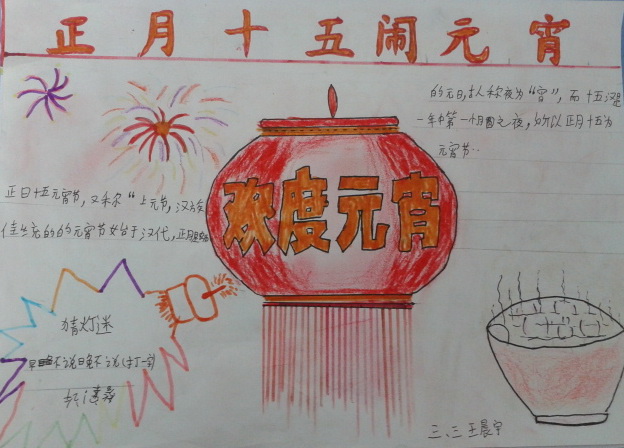 正月十五闹元宵
的元日,古人称夜为“宵”,而十五汉是
一年中第一个月圆之夜,所以正月十五为
元宵节…
正日十五元宵节,又称“上元节,汉族
传统的的元宵节始于汉代,正月是
欢度元宵
猜灯迷
早不说晚不说(打一字)
三、三 王晨宇